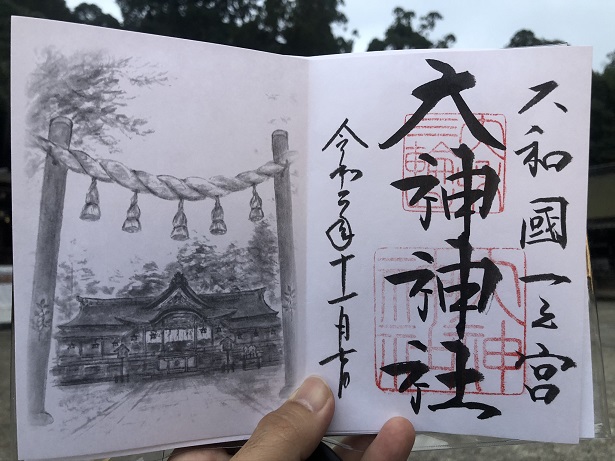 大和國一之宮
大神神社
令和年十一月日
大神
神社